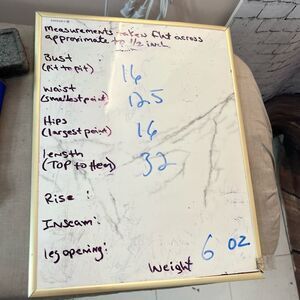 measurements taken flat across
approximate to 1/2 inch
Bust
(Pit to pit) 16
waist
(smallest point) 12.5
Hips
(largest point) 16
length
(TOP to Hem) 32
Rise :
Inseam:
leg opening:
Weight 6 oz